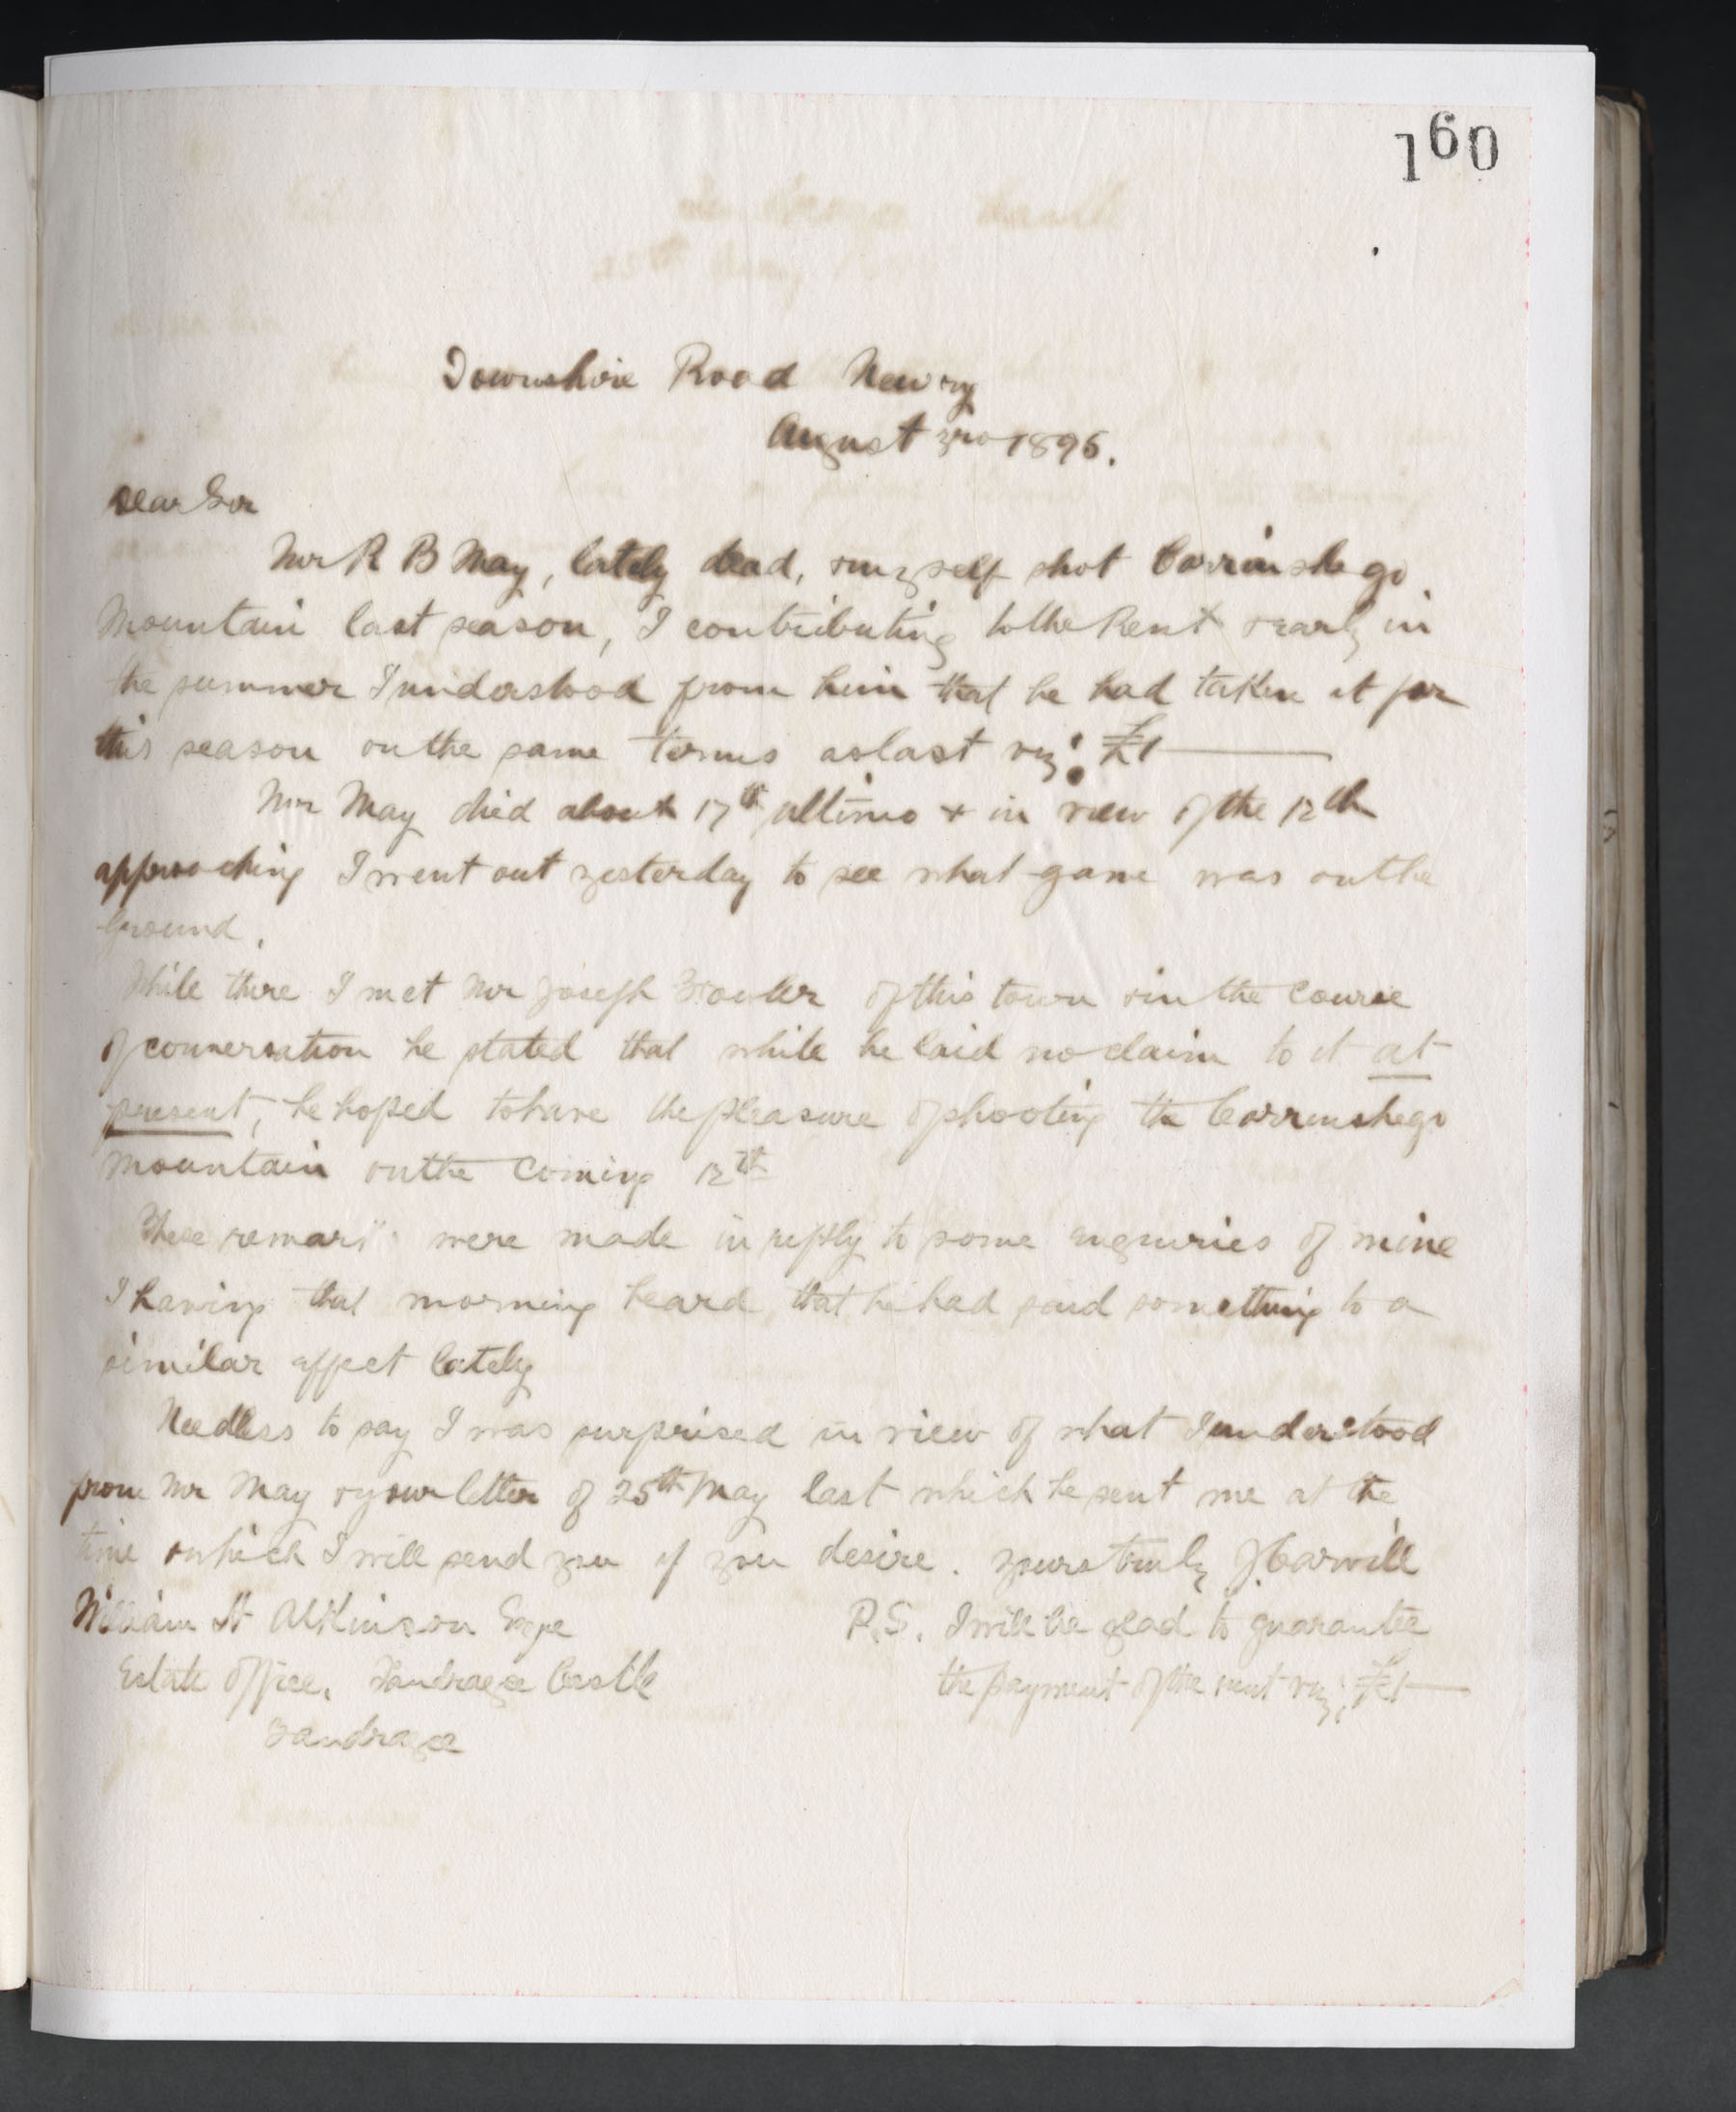 160
Downshire Road Newry
August 3rd 1896.
Dear Sir
Mr R B May, lately dead, & myself shot Carrinshego
Mountain last season, I contributing to the Rent & early in
the summer I understood from him that he had taken it for
this season on the same terms as last viz: £1
Mr May died about 17th ultimo & in view of the 12th
approaching I went out yesterday to see what game was on the
Ground.
While there I met Mr Joseph Fowler of this town & in the course
of conversation he stated that while he laid no claim to it at
present, he hoped to have the pleasure of shooting the Carrinshego
Mountain on the Coming 12th
These remarks were made in reply to some enquiries of mine
I having that morning heard that he had said something to a
similar affect lately
Needless to say I was surprised in view of what I understood
from Mr May & your letter of 25th May last which he sent me at the
time & which I will send you if you desire. yours truly J. Carvill
William H Atkinson Esqre
P.S. I will be glad to guarantee
Estate Office, Tandragee Castle
the payment of the rent viz; £1
Tandragee